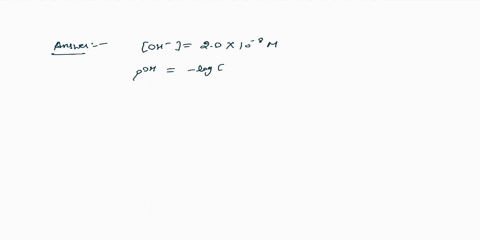 Answer:- [OH⁻] = 2.0 X 10⁻⁸ M
pOH = -log [